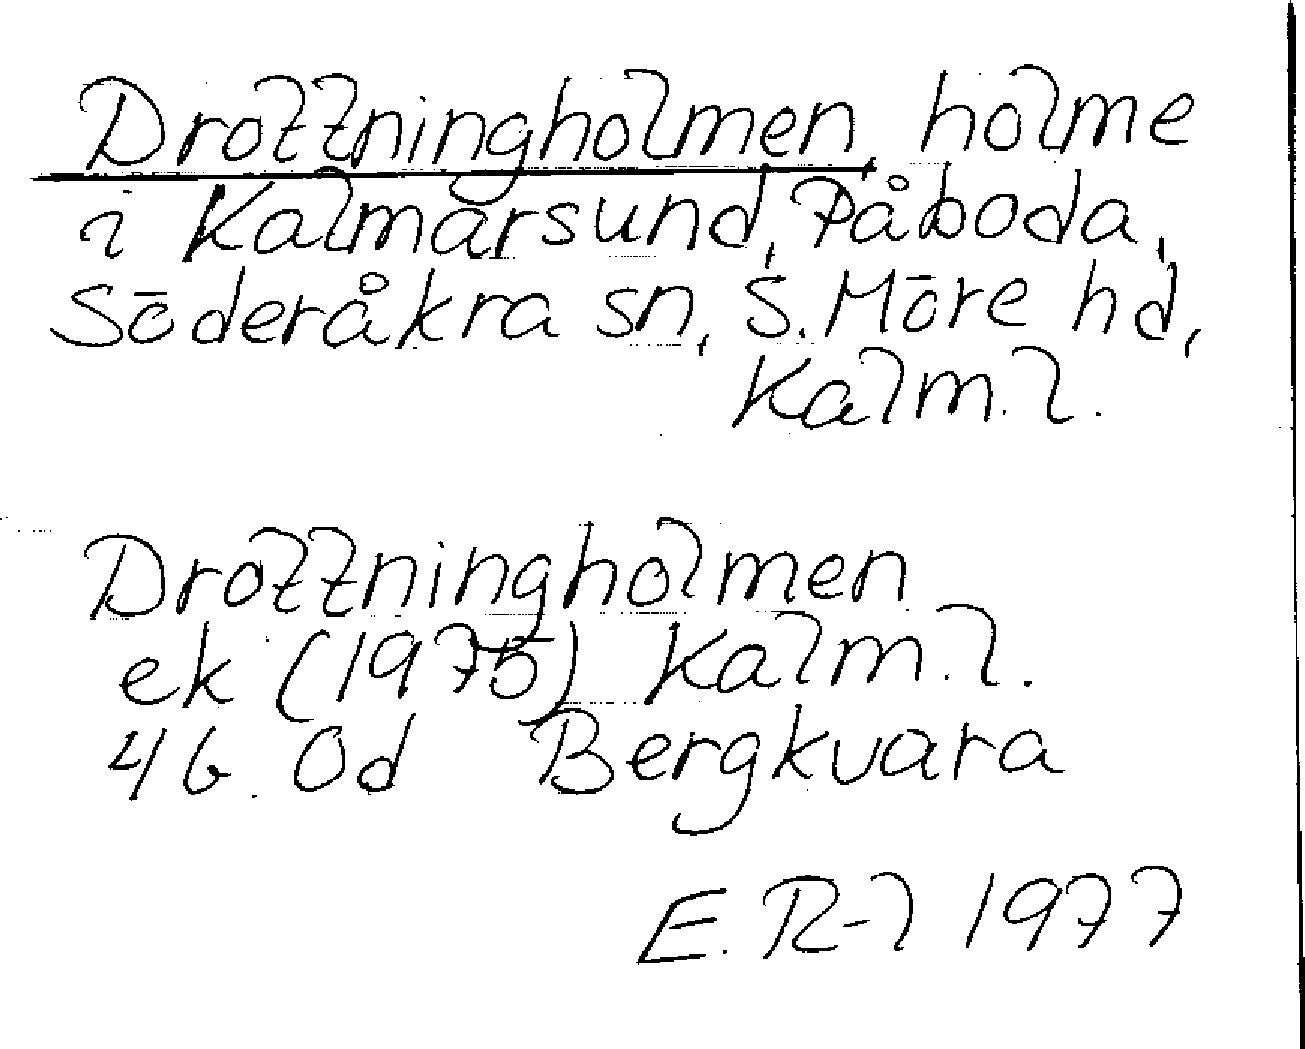 Drottningholmen holme
i Kalmarsund, Påboda,
Söderåkra sn, S. Möre hd,
Kalm. l.
Drottningholmen
ek (1975) Kalm. l.
4G 0d Bergkvara
E. R-l 1977